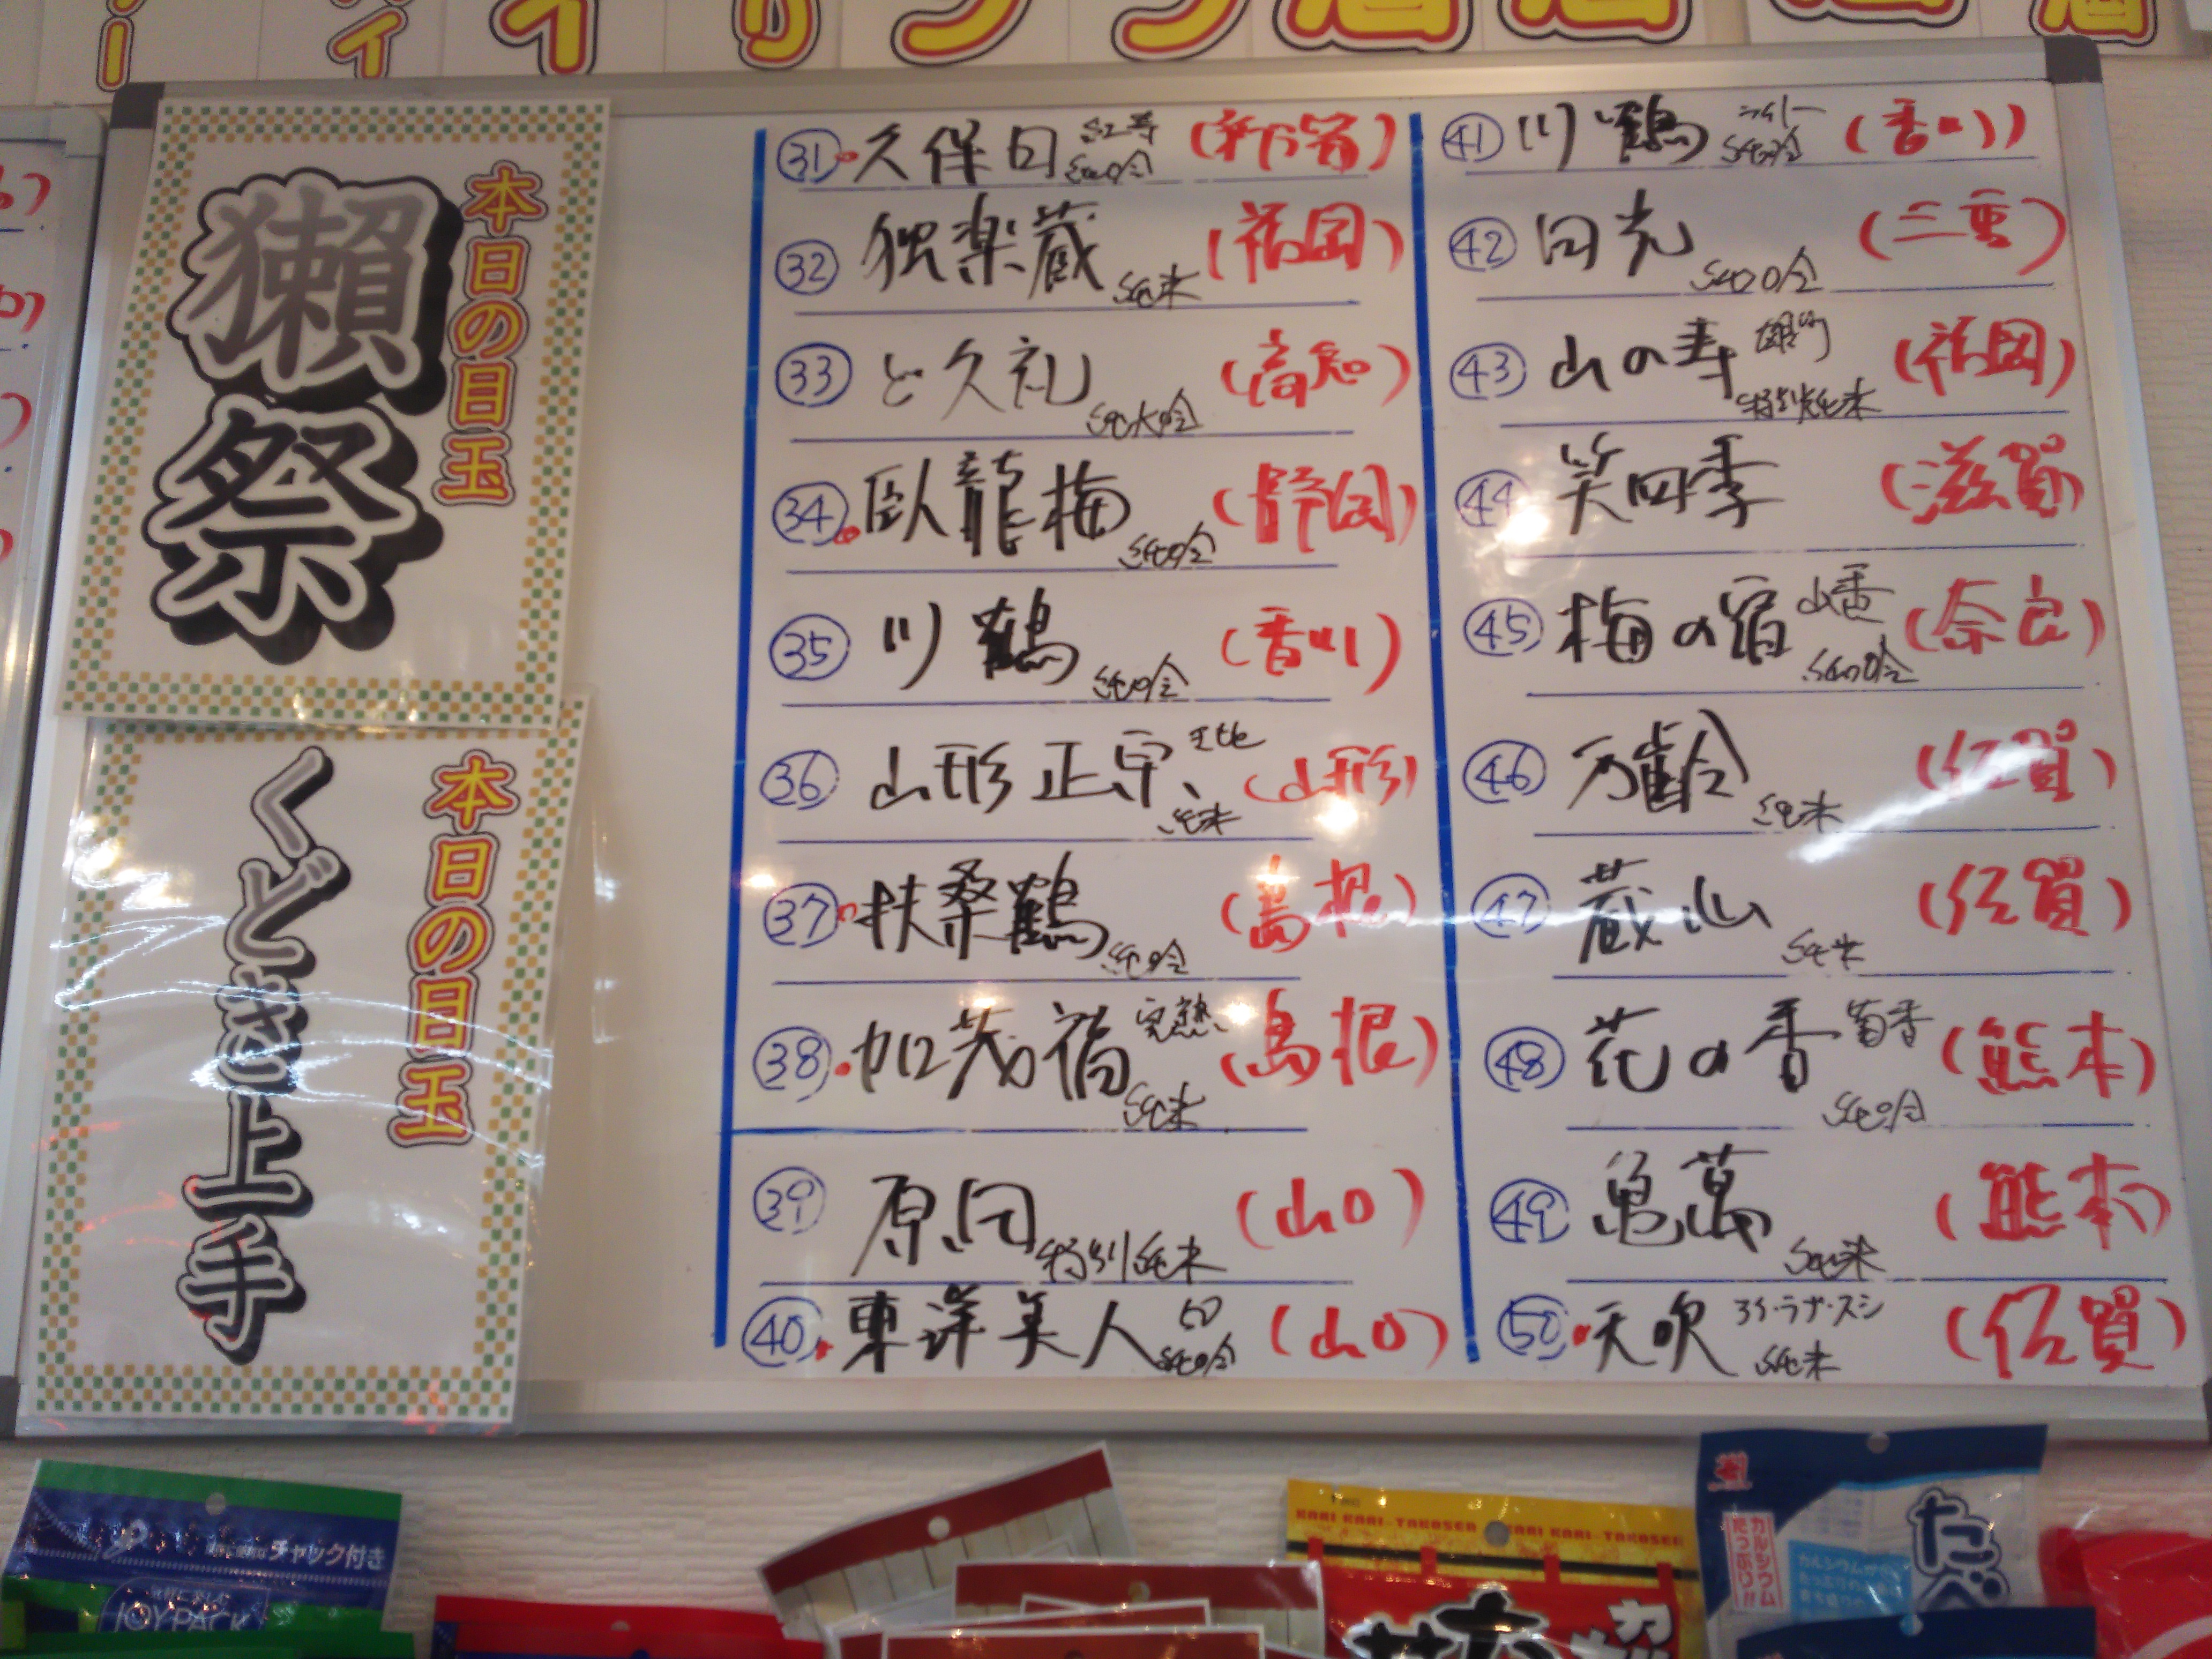 本日の目玉
獺祭
本日の目玉
くどき上手
31 久保田 紅寿 純吟 (新潟)
32 独楽蔵 純米 (福岡)
33 ど久礼 純大吟 (高知)
34 臥龍梅 純吟 (静岡)
35 川鶴 純吟 (香川)
36 山形正宗 純米 (山形)
37 扶桑鶴 純吟 (島根)
38 加茂福 完熟 純米 (島根)
39 原田 特別純米 (山口)
40 東洋美人 50 純吟 (山口)
41 川鶴 純吟 (香川)
42 田光 純吟 (三重)
43 山の寿 雄町 特別純米 (福岡)
44 笑四季 (滋賀)
45 梅の宿 山香 純吟 (奈良)
46 万齢 純米 (佐賀)
47 蔵心 純米 (佐賀)
48 花の香 菊香 純吟 (熊本)
49 亀萬 純米 (熊本)
50 天吹 純米 (佐賀)
チャック付き
JOY PACK
KARI KARI TAKOSEN KARI KARI TAKOSEN
カルシウム
たっぷり!!
たべ